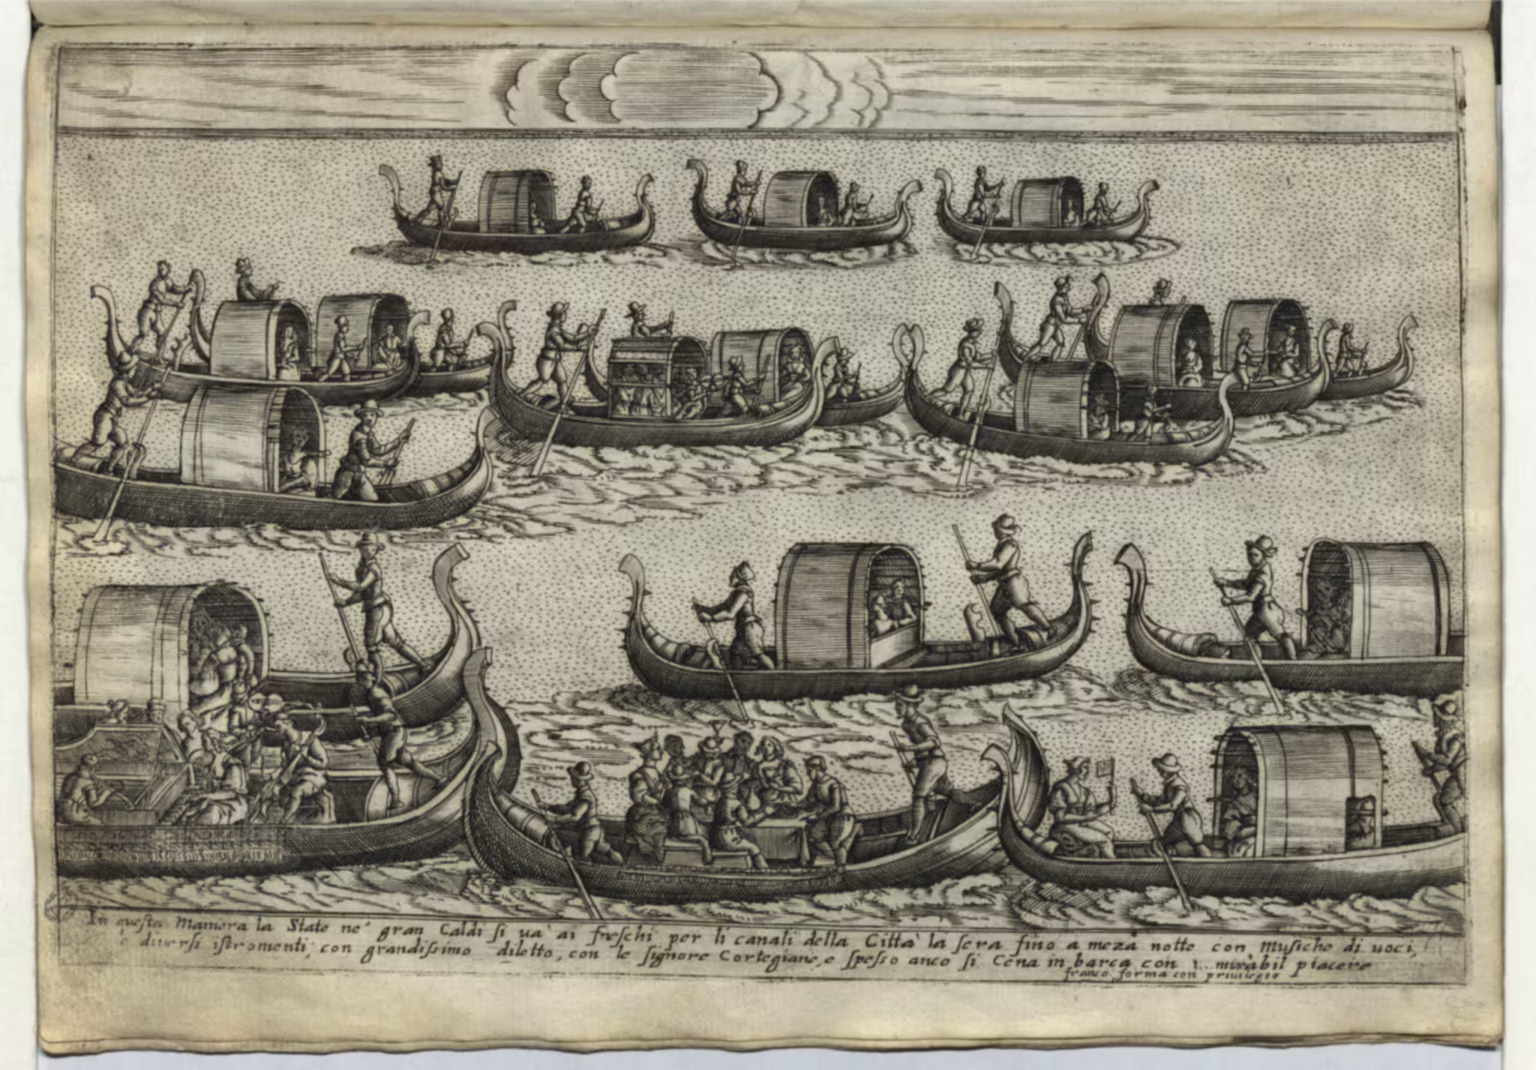 In questa Maniera la State ne' gran Caldi si ua' ai freschi per li canali della Città la sera fino a meza notte con Musiche di uoci,
e diuersi istromenti, con grandissimo diletto, con le signore Cortegiane, e spesso anco si Cena in barca con mirabil piacere
franco forma con priuilegio